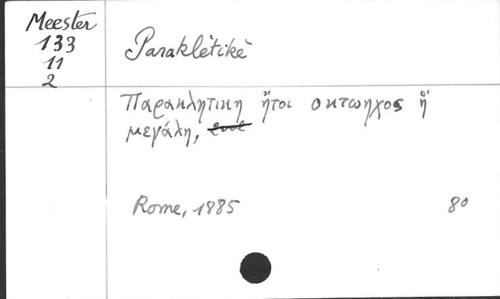 Meester
133
11
2
Paraklètikè
Παρακλητικη ἤτοι οκτωηχος ἡ
μεγάλη,
Rome, 1885 80